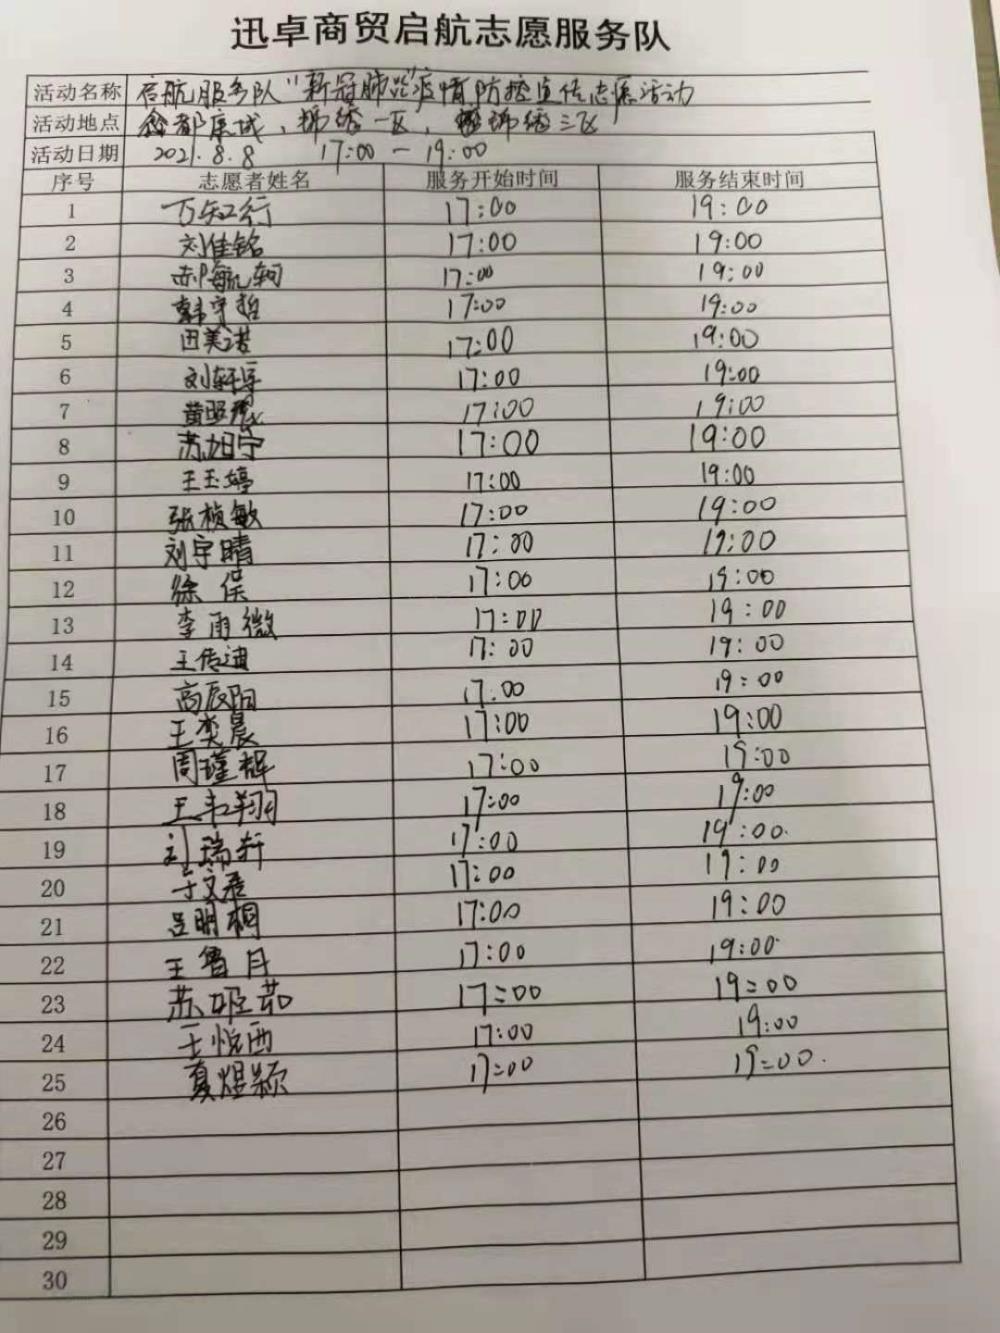 迅卓商贸启航志愿服务队
活动名称 启航服务队"新冠肺炎"疫情防控宣传志愿活动
活动地点 鑫都康城，锦绣一区，锦绣三区
活动日期 2021.8.8 17:00 — 19:00
序号 志愿者姓名 服务开始时间 服务结束时间
1 万知行 17:00 19:00
2 刘佳铭 17:00 19:00
3 郝航轲 17:00 19:00
4 韩宇哲 17:00 19:00
5 田美诺 17:00 19:00
6 刘轩 17:00 19:00
7 黄昭 17:00 19:00
8 苏旭宁 17:00 19:00
9 王玉婷 17:00 19:00
10 张桢敏 17:00 19:00
11 刘宇晴 17:00 19:00
12 徐保 17:00 19:00
13 李雨微 17:00 19:00
14 王传迪 17:00 19:00
15 高辰阳 17:00 19:00
16 王奕晨 17:00 19:00
17 周瑾辉 17:00 19:00
18 王韦翔 17:00 19:00
19 刘瑞轩 17:00 19:00
20 于文 17:00 19:00
21 吕明桐 17:00 19:00
22 王鲁月 17:00 19:00
23 苏姬茹 17:00 19:00
24 王悦西 17:00 19:00
25 夏煜颖 17:00 19:00
26
27
28
29
30